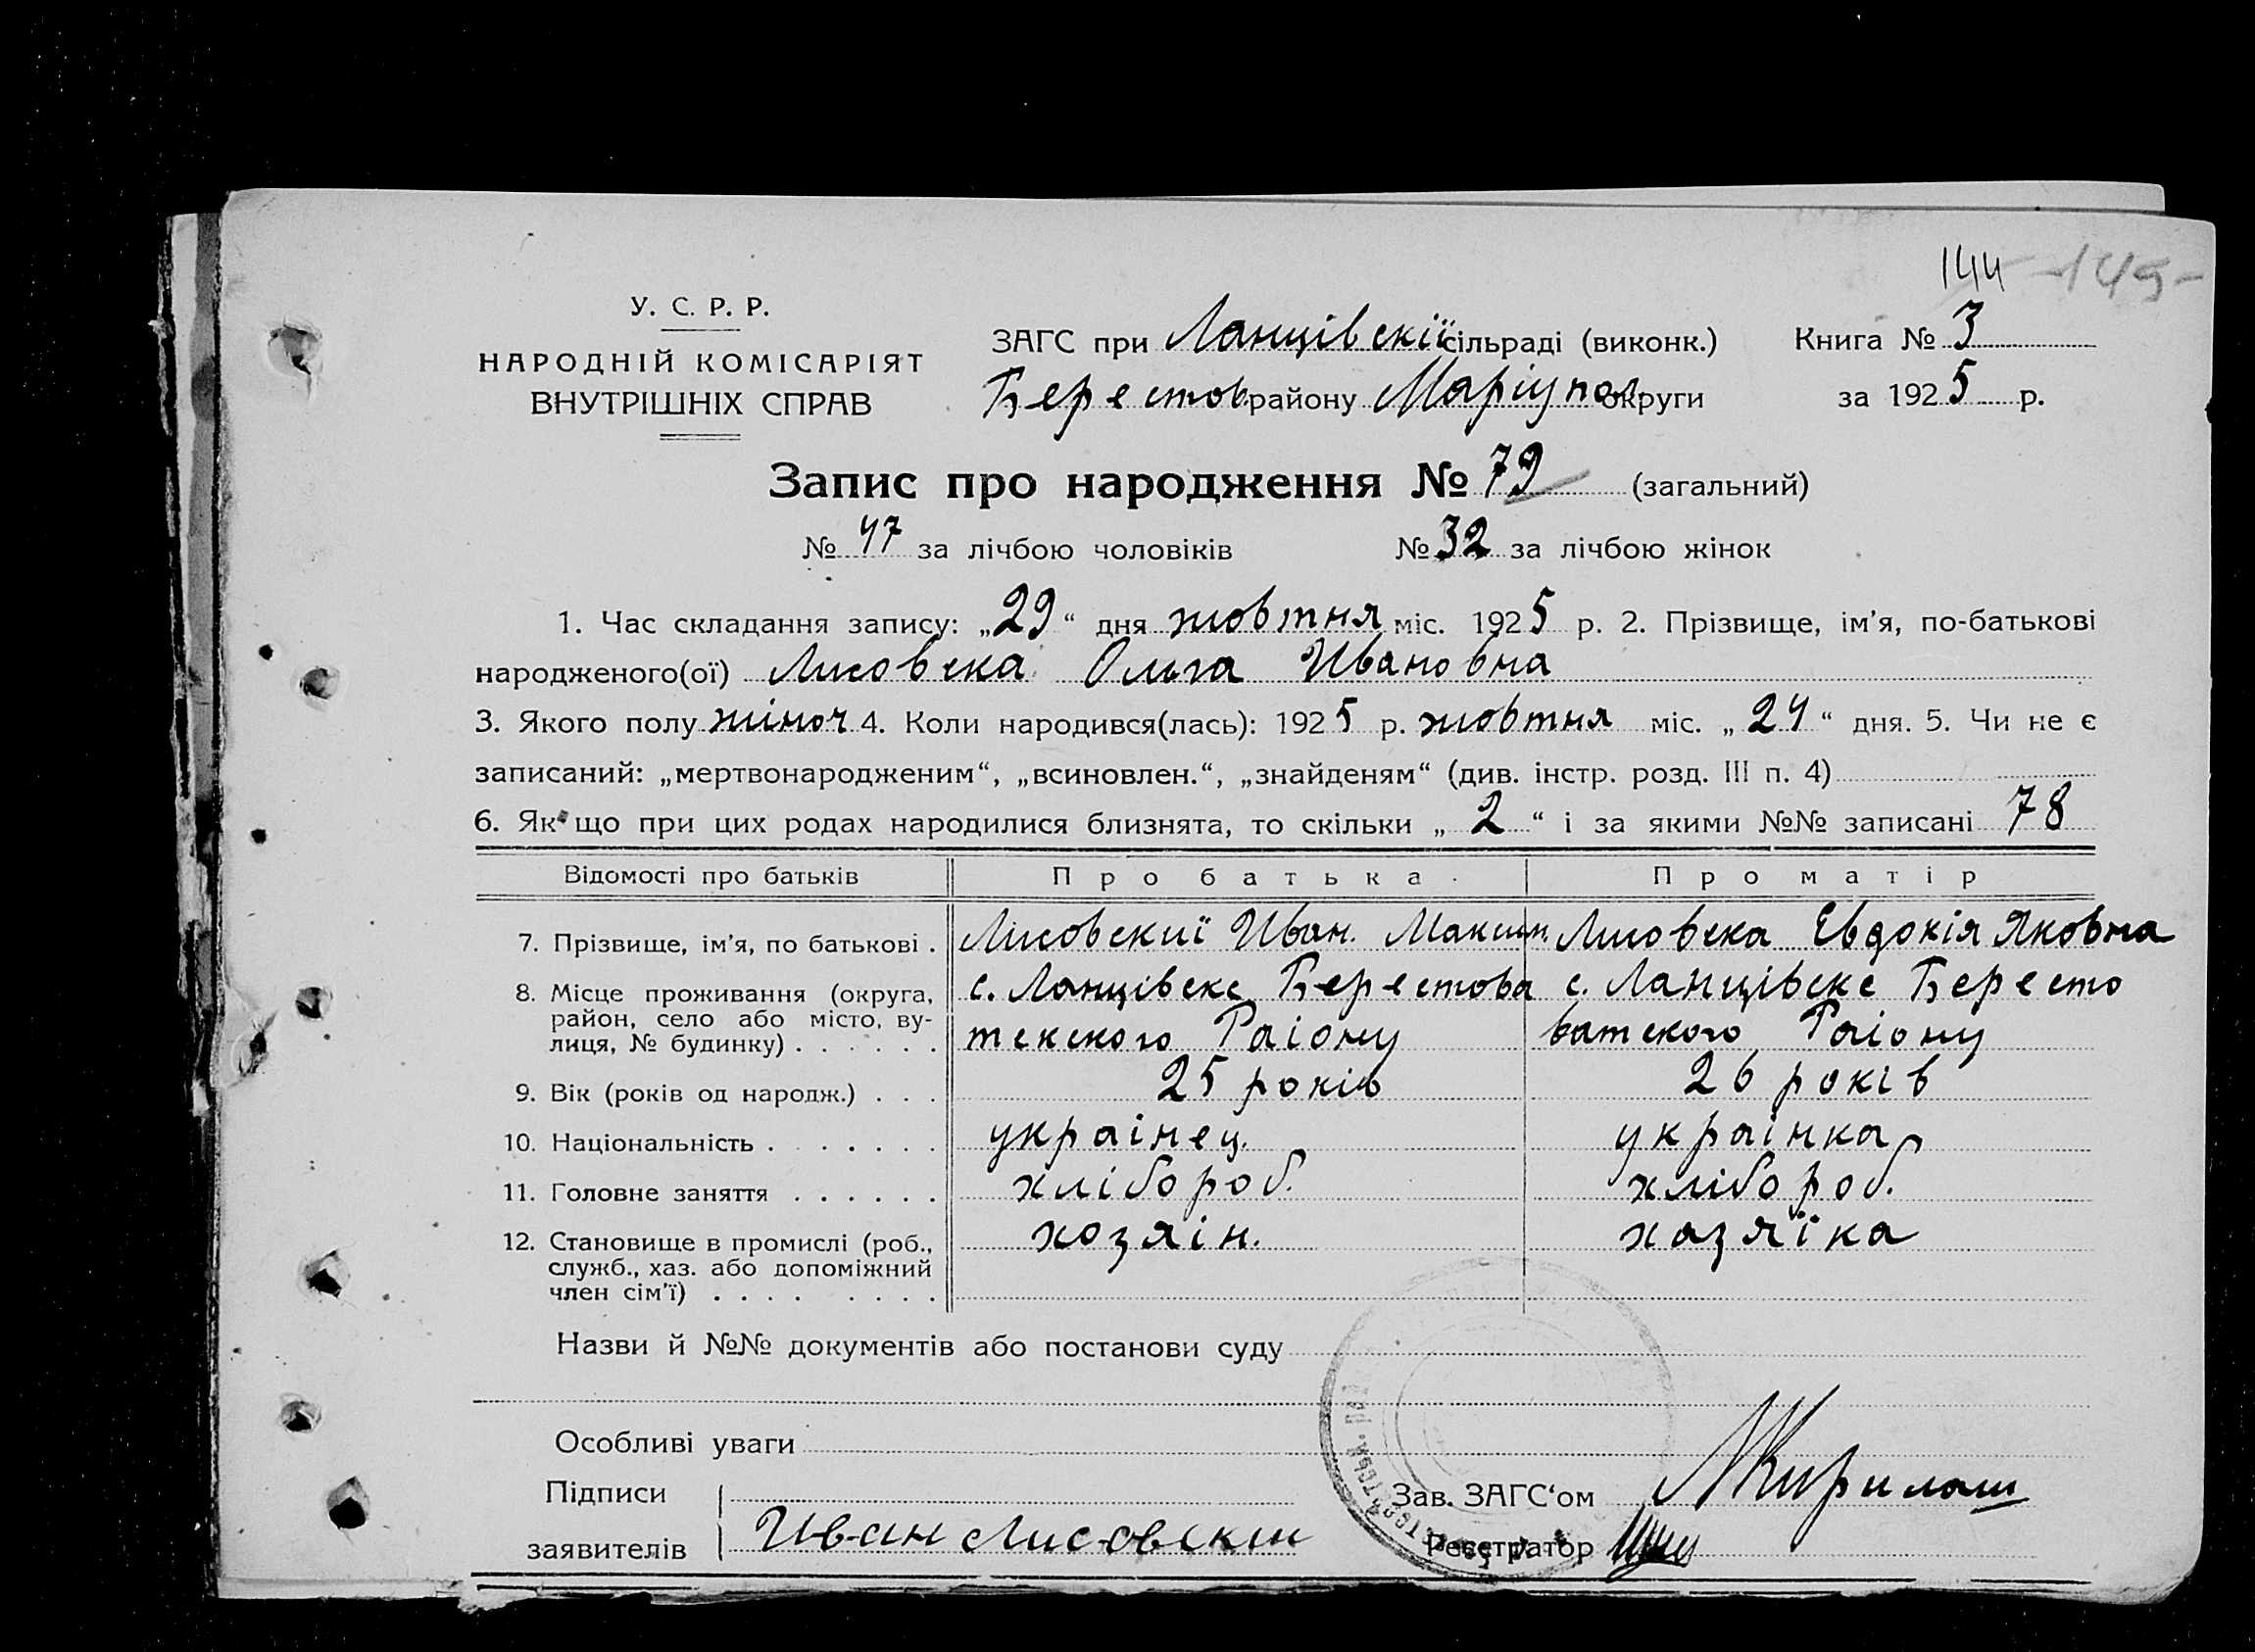 144 -145-
У. С. Р. Р.
НАРОДНІЙ КОМІСАРІЯТ
ВНУТРІШНІХ СПРАВ
ЗАГС при Ланцівскій сільраді (виконк.) Книга № 3
Берестов. району Маріупол. округи за 1925 р.
Запис про народження № 79 (загальний)
№ 47 за лічбою чоловіків № 32 за лічбою жінок
1. Час складання запису: „29“ дня жовтня міс. 1925 р. 2. Прізвище, ім’я, по-батькові
народженого(ої) Лисовска Ольга Ивановна
3. Якого полу жіноч 4. Коли народився(лась): 1925 р. жовтня міс. „24“ дня. 5. Чи не є
записаний: „мертвонародженим“, „всиновлен.“, „знайденям“ (див. інстр. розд. III п. 4)
6. Як що при цих родах народилися близнята, то скільки „2“ і за якими №№ записані 78
Відомості про батьків Про батька Про матір
7. Прізвище, ім’я, по батькові . Лисовский Иван. Максим. Лисовска Евдокія Яковна
8. Місце проживання (округа, с. Ланцівске Берестова с. Ланцівске Бересто
район, село або місто, ву-
лиця, № будинку) . . . . . . тскского Раіону ватского Раіону
9. Вік (років од народж.) . . . 25 років 26 років
10. Національність . . . . . . . украінец. украінка
11. Головне заняття . . . . . . хлібороб. хлібороб.
12. Становище в промислі (роб., хозяін. хазяїка
служб., хаз. або допоміжний
член сім’ї) . . . . . . . .
Назви й №№ документів або постанови суду
Особливі уваги
Підписи Зав. ЗАГС‘ом
заявителів Иван Лисовский Реєстратор